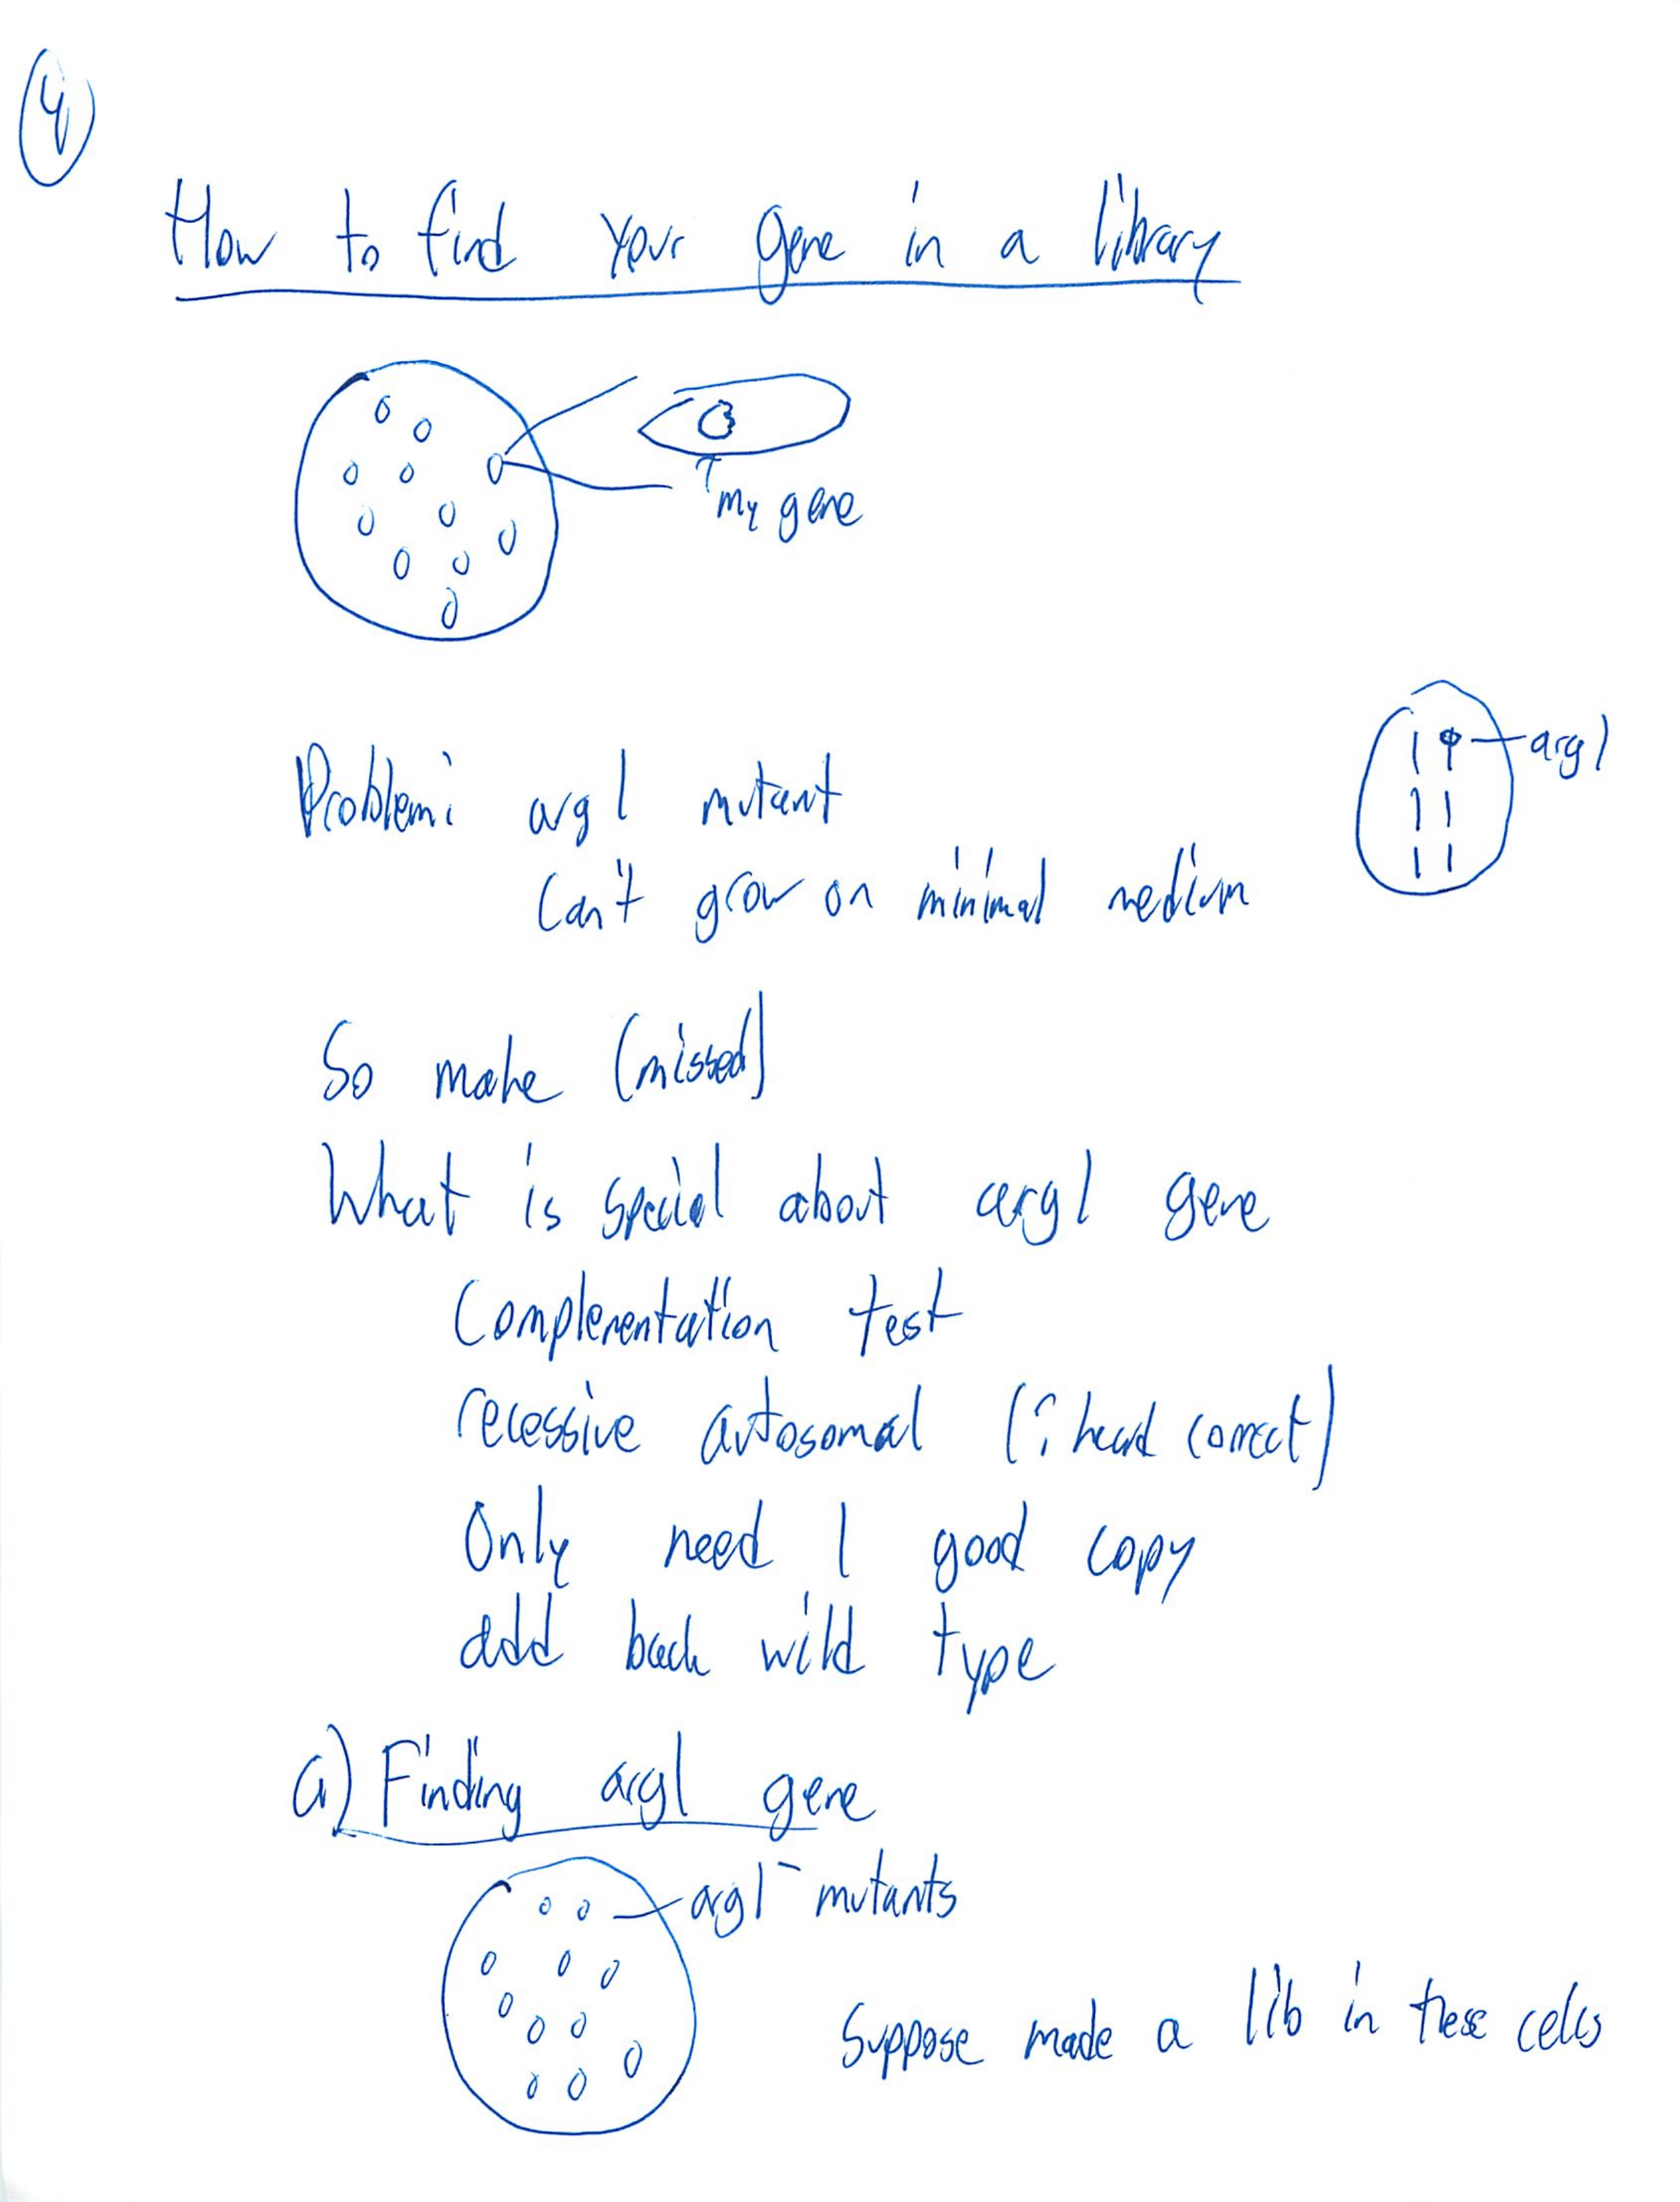 4
How to find your gene in a library
my gene
arg1
Problem: arg1 mutant
Can't grow on minimal medium
So make (missed)
What is special about arg1 gene
Complementation test
recessive autosomal (? heard correct)
Only need 1 good copy
add back wild type
a) Finding arg1 gene
arg1⁻ mutants
Suppose made a lib in these cells